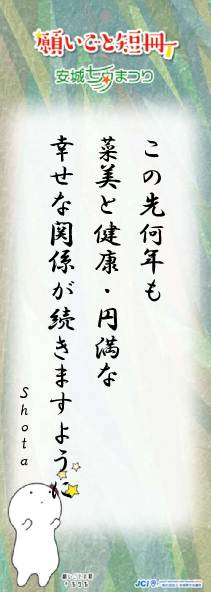 願いごと短冊
安城七夕まつり
この先何年も
菜美と健康・円満な
幸せな関係が続きますように
Shota
JCI